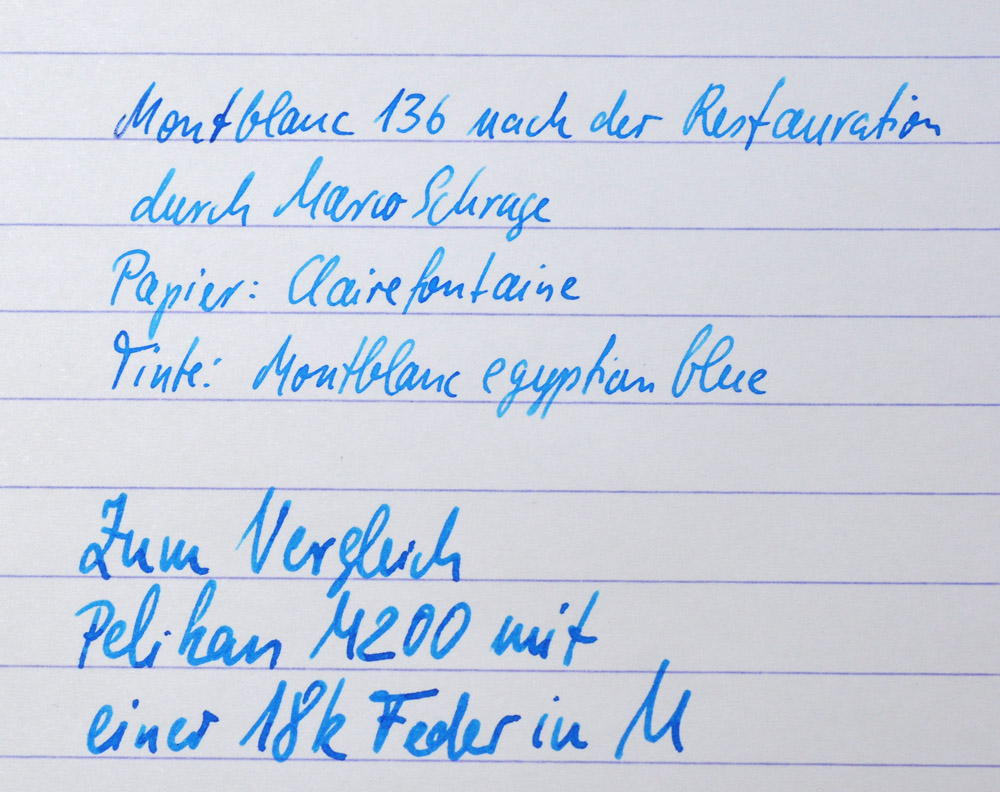 Montblanc 136 nach der Restauration
durch Marco Schrage
Papier: Clairefontaine
Tinte: Montblanc egyptian blue
Zum Vergleich
Pelikan M200 mit
einer 18k Feder in M